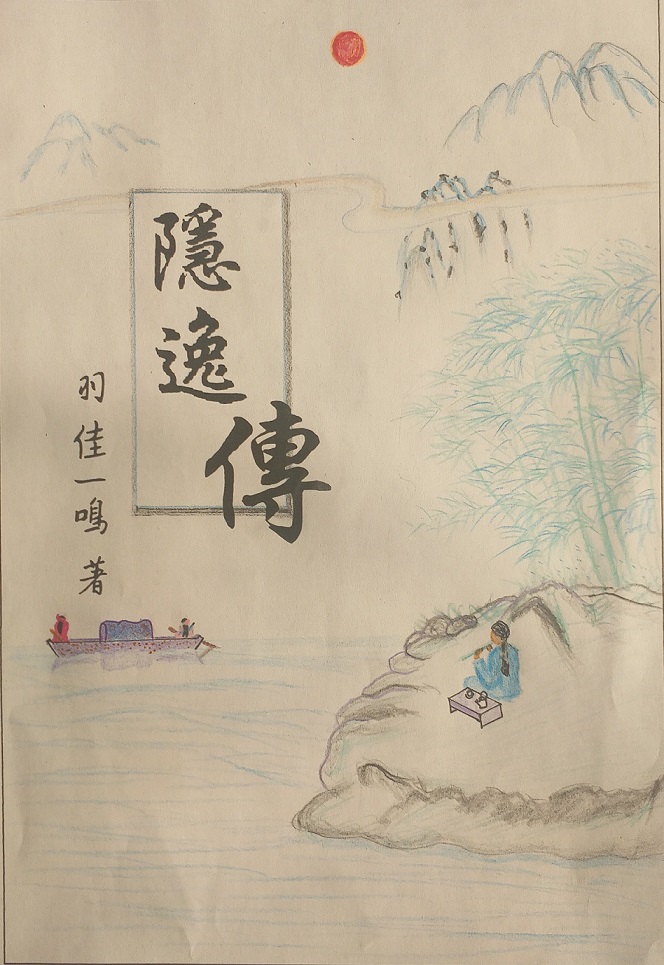 隱逸傳
羽佳一鳴 著